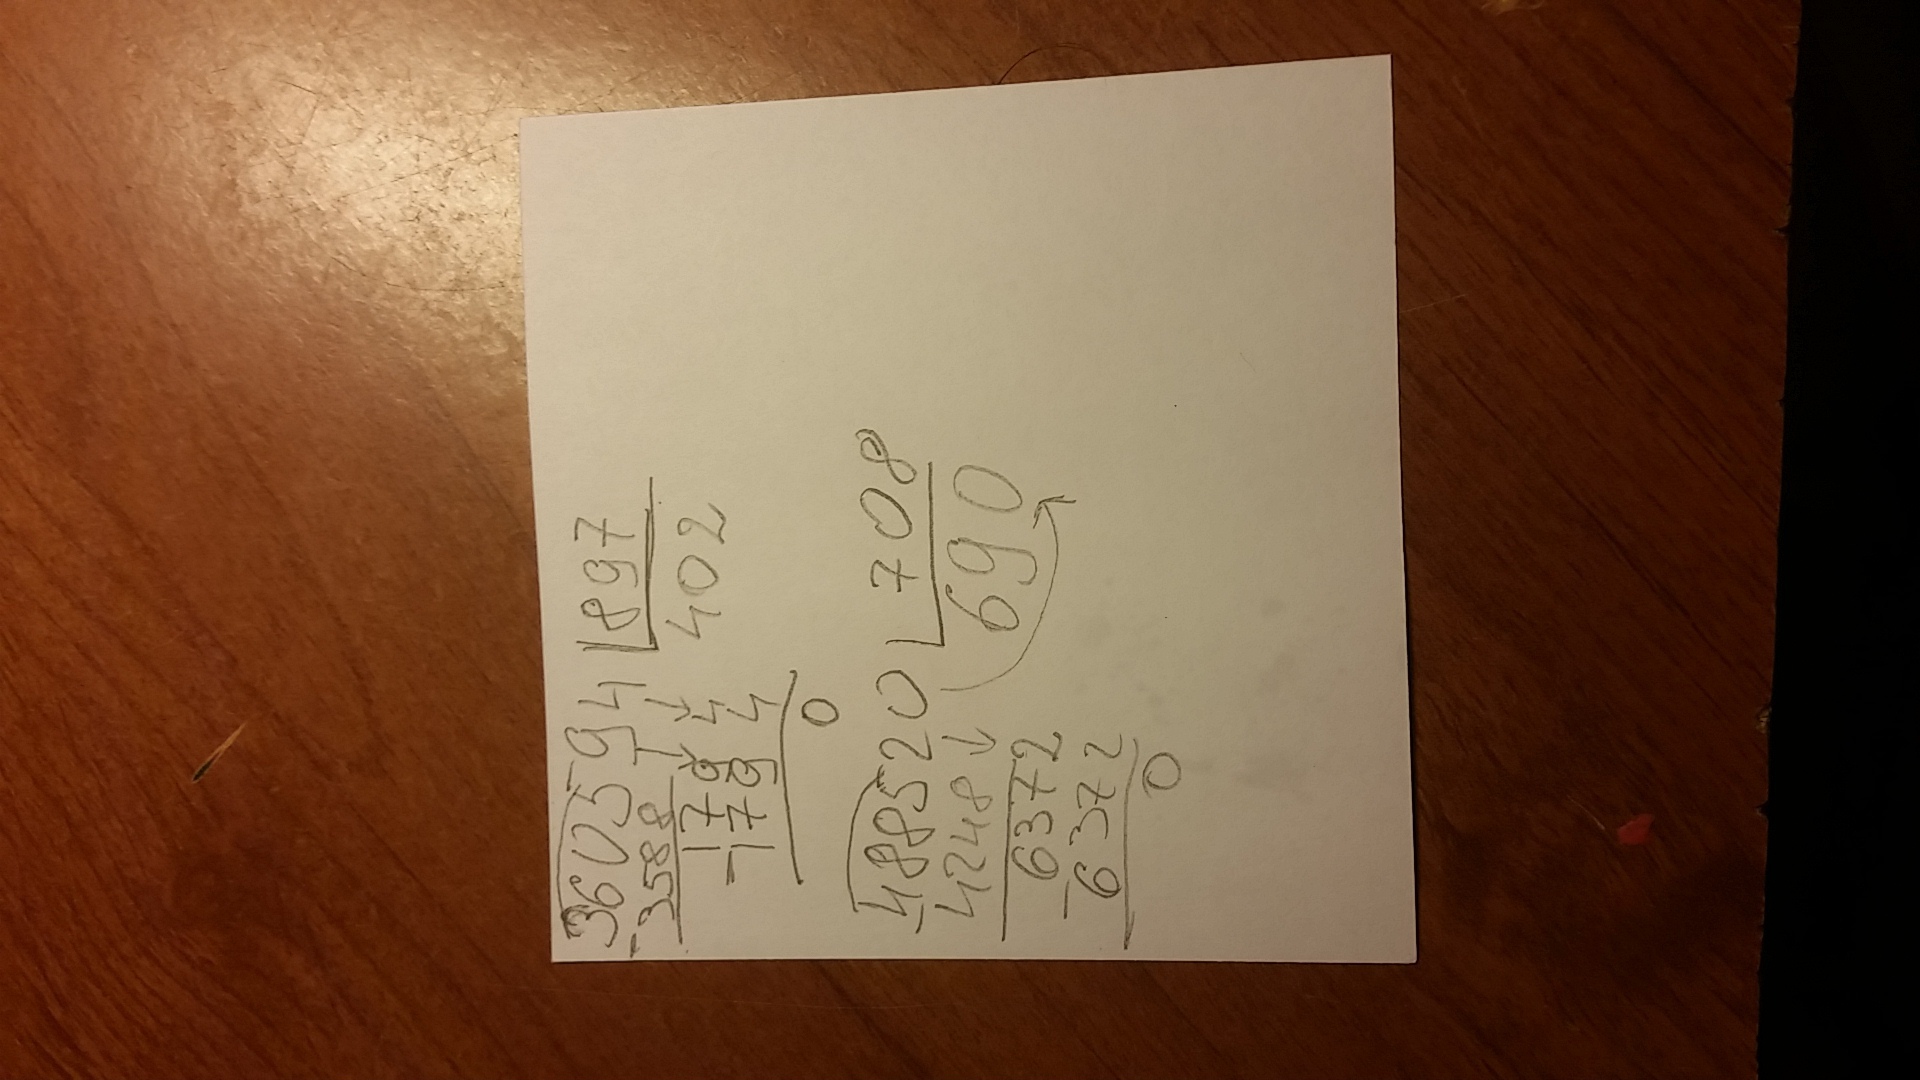 360594 897
-3588 402
1794
-1794
0
-488520 708
4248 690
6372
-6372
0